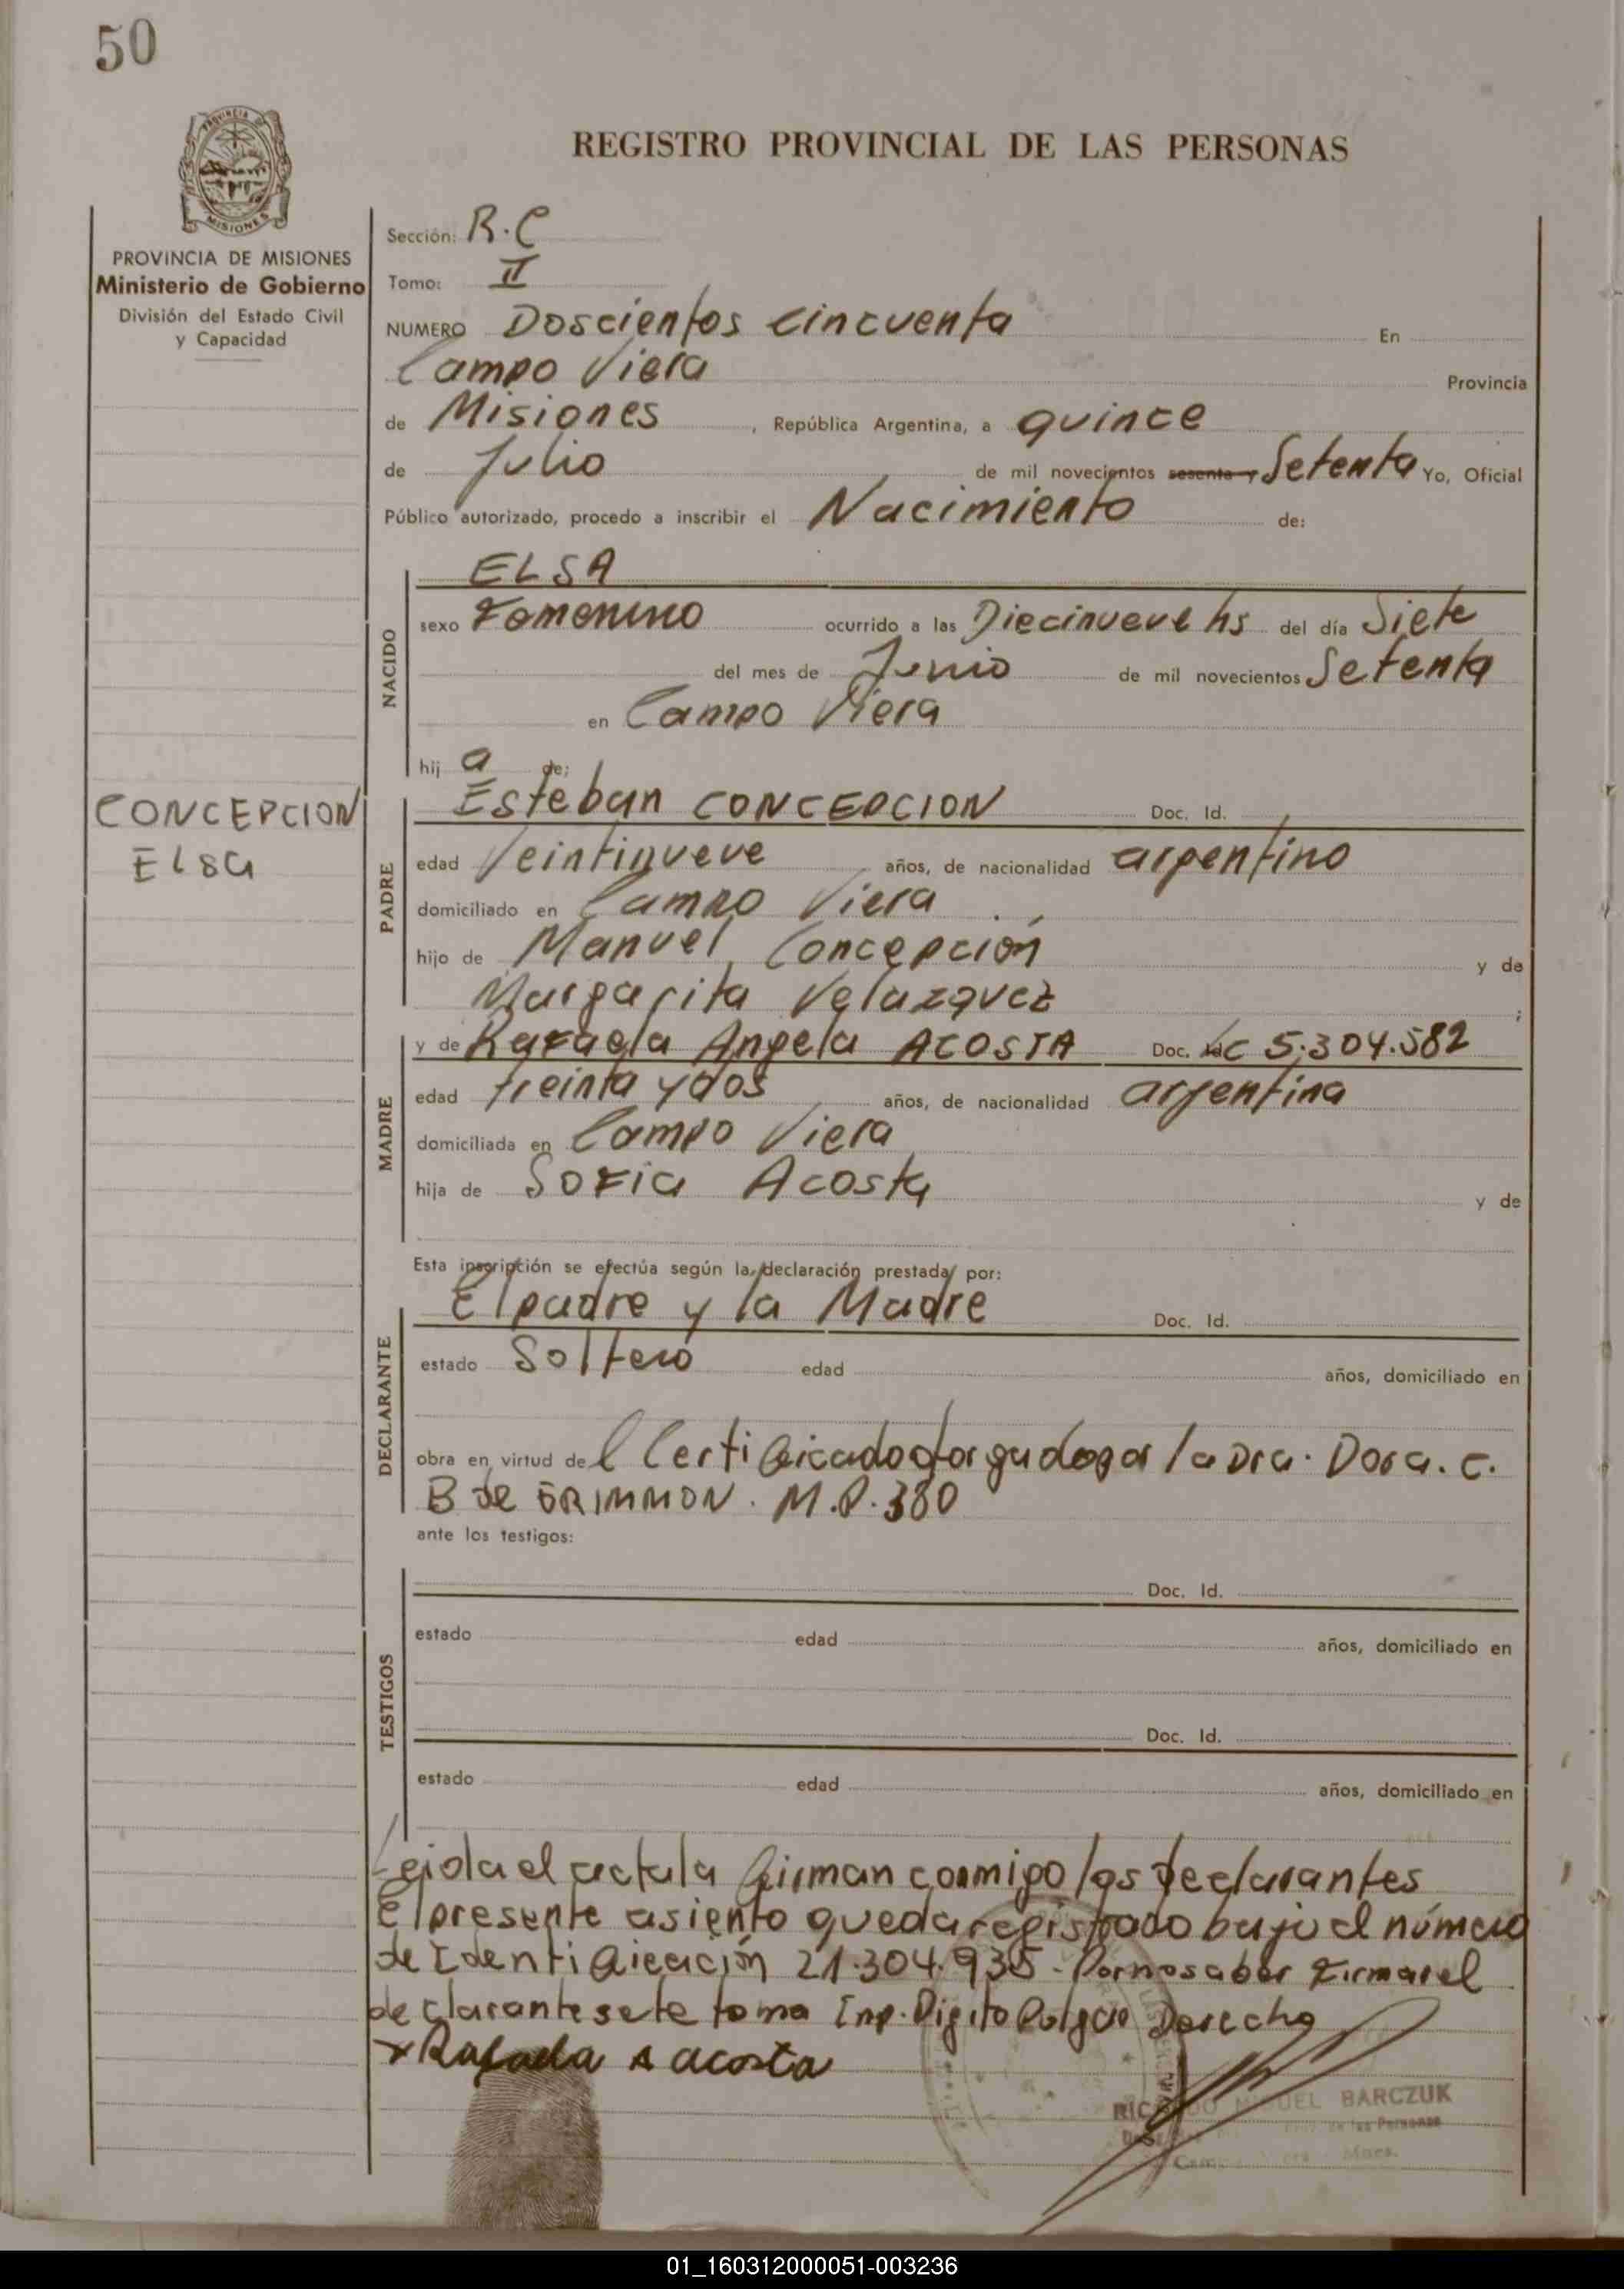 50
REGISTRO PROVINCIAL DE LAS PERSONAS
MISIONES
PROVINCIA DE MISIONES
Ministerio de Gobierno
División del Estado Civil
y Capacidad
Sección: R.C
Tomo: II
NUMERO Doscientos cincuenta En
Campo Viera Provincia
de Misiones, República Argentina, a quince
de Julio de mil novecientos sesenta y Setenta Yo, Oficial
Público autorizado, procedo a inscribir el Nacimiento de:
NACIDO
ELSA
sexo Femenino ocurrido a las Diecinueve hs del día Siete
del mes de Junio de mil novecientos Setenta
en Campo Viera
hij a de:
CONCEPCION
Elsa
PADRE
Esteban CONCEPCION Doc. Id.
edad Veintinueve años, de nacionalidad argentino
domiciliado en Campo Viera
hijo de Manuel Concepción y de
Margarita Velazquez ;
MADRE
y de Rafaela Angela ACOSTA Doc. Id. LC 5.304.582
edad treinta y dos años, de nacionalidad argentina
domiciliada en Campo Viera
hija de Sofia Acosta y de
Esta inscripción se efectúa según la declaración prestada por:
DECLARANTE
El padre y la Madre Doc. Id.
estado Soltero edad años, domiciliado en
obra en virtud de l Certificado otorgado por la Dra. Dora. C.
B de GRIMMON. M.P. 380
ante los testigos:
TESTIGOS
Doc. Id.
estado edad años, domiciliado en
Doc. Id.
estado edad años, domiciliado en
Leida el acta la firman conmigo los declarantes
El presente asiento queda registrado bajo el número
de Identificación 21.304.935 - Por no saber Firmar el
declarante se le toma Imp. Digito Pulgar Derecho
x Rafaela A acosta
BARCZUK
de las Personas
01_160312000051-003236